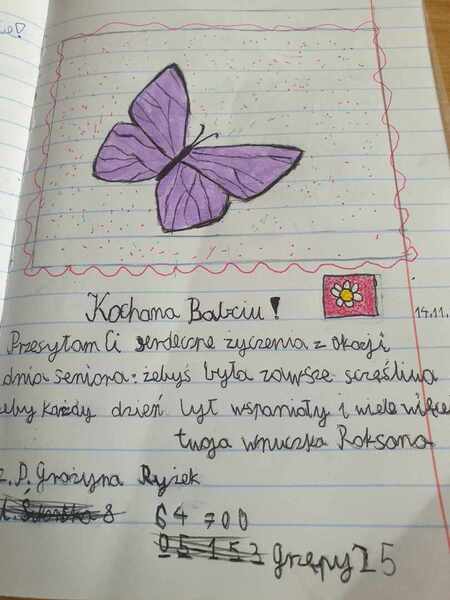 Kochana Babciu!
14.11.
Przesyłam Ci serdeczne życzenia z okazji
dnia seniora: żebyś była zawsze scząśliwa
żeby każdy dzień był wspaniały i wiele więce
twoja wnuczka Roksana
z.P. Grażyna Ryżek
8 64 700
05 153 Grępy 25